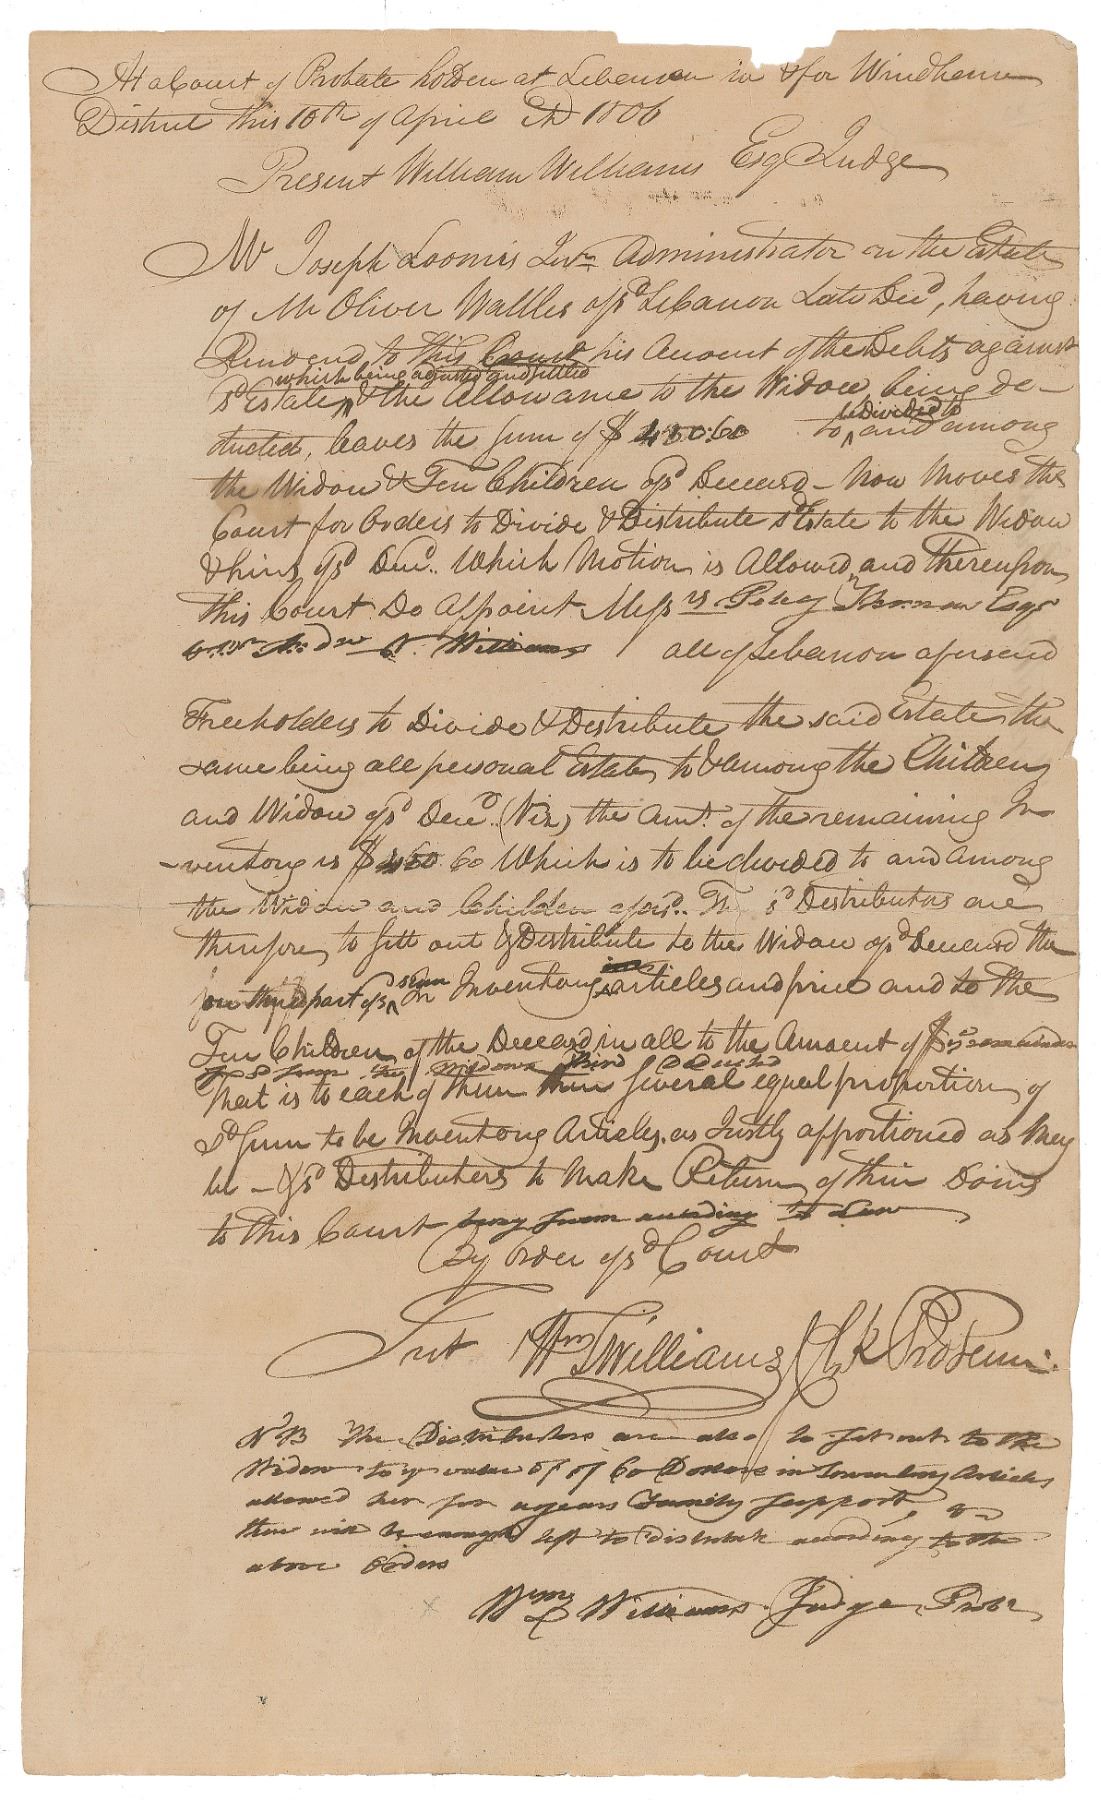 At a Court of Probate holden at Lebanon in & for Windham
District this 10th of April AD 1806
Present William Williams Esq Judge
Mr Joseph Loomis Junr Administrator on the Estate
of Mr Oliver Wattles of sd Lebanon Late Decd, having
to this Court his Amount of the Debts against
which being adjusted and settled
sd Estate, & the Allowance to the Widow being de-
be divided to
ducted, leaves the sum of $ 450:60 to and among
the Widow & Ten Children of sd Deceasd - Now Moves the
Court for Orders to Divide & Distribute sd Estate to the Widow
& hiers of sd Decd.. Which Motion is Allowed, and Thereupon
this Court Do Appoint Messrs Peleg Thomas Esqr
N. Williams all of Lebanon aforesaid
Freeholders to Divide & Distribute the said Estate, the
same being all personal Estate, to & among the Children
and Widow of sd Decd.. (Viz, the Amt. of the remaining In
-ventory is $ 450 60 Which is to be divided to and Among
the Widow and Children aforsd.. The sd Distributors are
therefore to sett out & Distribute to the Widow of sd Deceasd the
one third part of sd sum In Inventory articles and price and to the
Ten Children of the Deceasd in all to the Amount of $
sd sum the Widows third Deducted
that is to each of them their several equal proportion of
sd sum to be Inventory Articles, as Justly apportioned as May
be - & sd Distributers to Make Return of their Doins
to this Court according to Law
By Order of sd Court
Test Wm T Williams Clk Pro Tem:
NB The Distributors are also to set out to the
Widow to ye value of of 60 Dollars in Inventory Articles
allowed her for a years Family support, &
there will be enough left to distribute according to the
above Orders
Wm Williams Judge Probe